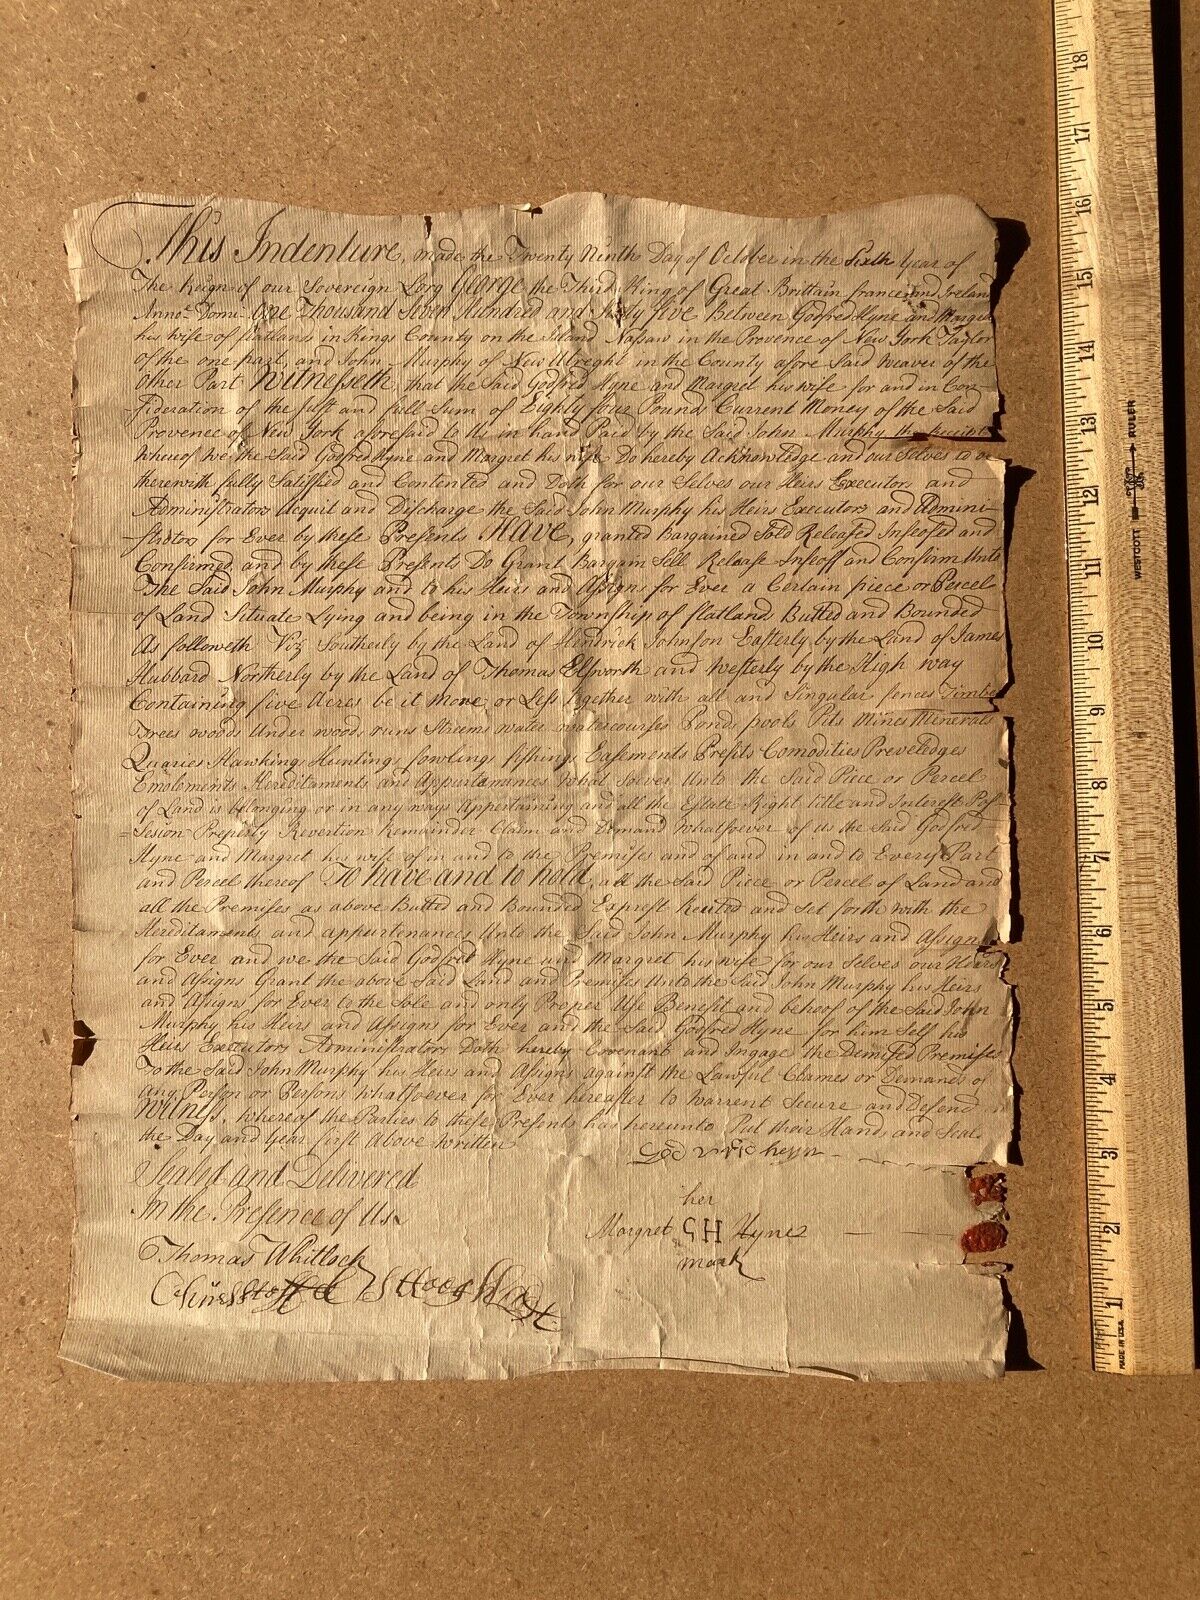 This Indenture, made the Twenty Ninth Day of October in the Sixth Year of
The Reign of our Sovereign Lorg George the Third King of Great Brittain france and Ireland
Anno Domi One Thousand Seven Hundred and Sixty five Between Godfred Hyne and Margret
his wife of flatlans in Kings County on the Island Nassaw in the Provence of New York Taylor
of the one part, and John Murphy of New Utreght in the County afore Said weaver of the
Other Part Witnesseth, that he Said Godfred Hyne and Margret his wife for and in Con-
-sideration of the just and full Sum of Eighty four Pounds Current Money of the Said
Provence of New York aforesaid to Us in hand Paid by the Said John Murphy the Receipt
whereof we the Said Godfred Hyne and Margret his wife Do hereby Acknowledge and our Selves to be
therewith fully Satisfied and Contented and Doth for our Selves our Heirs Executors and
Administrators Acquit and Discharge the Said John Murphy his Heirs Executors and Admini-
-strators for Ever by these Presents Have, granted Bargained Sold Released Infeofed and
Confirmed and by these Presents Do Grant Bargain Sell Release Infeoff and Confirm Unto
The Said John Murphy and to his Heirs and Assigns for Ever a Certain piece or Percel
of Land Situate Lying and being in the Township of flatland Butted and Bounded
As followeth Viz Southerly by the Land of Hendrick Johnson Easterly by the Land of James
Hubbard Northerly by the Land of Thomas Elsworth and westerly by the High way
Containing five Acres be it more or Less together with all and Singular fences Timber
Trees woods Under woods runs Streems water watercourses Ponds pools Pits Mines Minerals
Quaries Hawkings Huntings fowlings fishings Easements Profits Comodities Preveledges
Emoloments Hereditaments and Appurtanances what Soever Unto the Said Piece or Percel
of Land is belonging or in any ways Appertaining and all the Estate Right title and Interest Pos-
-Sesion Property Revertion Remainder Claim and Demand Whatsoever of us the Said Godfred
Hyne and Margret his wife of in and to the Premises and of and in and to Every Part
and Percel thereof To have and to hold, all the Said Piece or Percel of Land and
all the Premises as above Butted and Bounded Exprest Recited and Set forth with the
Hereditaments and appurtenances Unto the Said John Murphy his Heirs and Assigns
for Ever and we the Said Godfred Hyne and Margret his wife for our Selves our Heirs
and Assigns Grant the above Said Land and Premises Unto the Said John Murphy his Heirs
and Assigns for Ever to the Sole and only Proper Use Benefit and behoof of the Said John
Murphy his Heirs and Assigns for Ever and the Said Godfred Hyne for him Self his
Heirs Executors Administrators Doth hereby Covenant and Ingage the Demised Premises
To the Said John Murphy his Heirs and Assigns against the Lawful Clames or Demands of
any Person or Persons whatsoever for Ever hereafter to warrent Secure and Defend in
Witness, whereof the Parties to these Presents has hereunto Put their Hands and Seals
the Day and Year first Above written
Sealed and Delivered
In the Presence of Us.
her
Margret GH Hyne
mark
Thomas Whitlock
18 17 16 15 14 13 12 11 10 9 8 7 6 5 4 3 2 1
WESTCOTT RULER
MADE IN U.S.A.